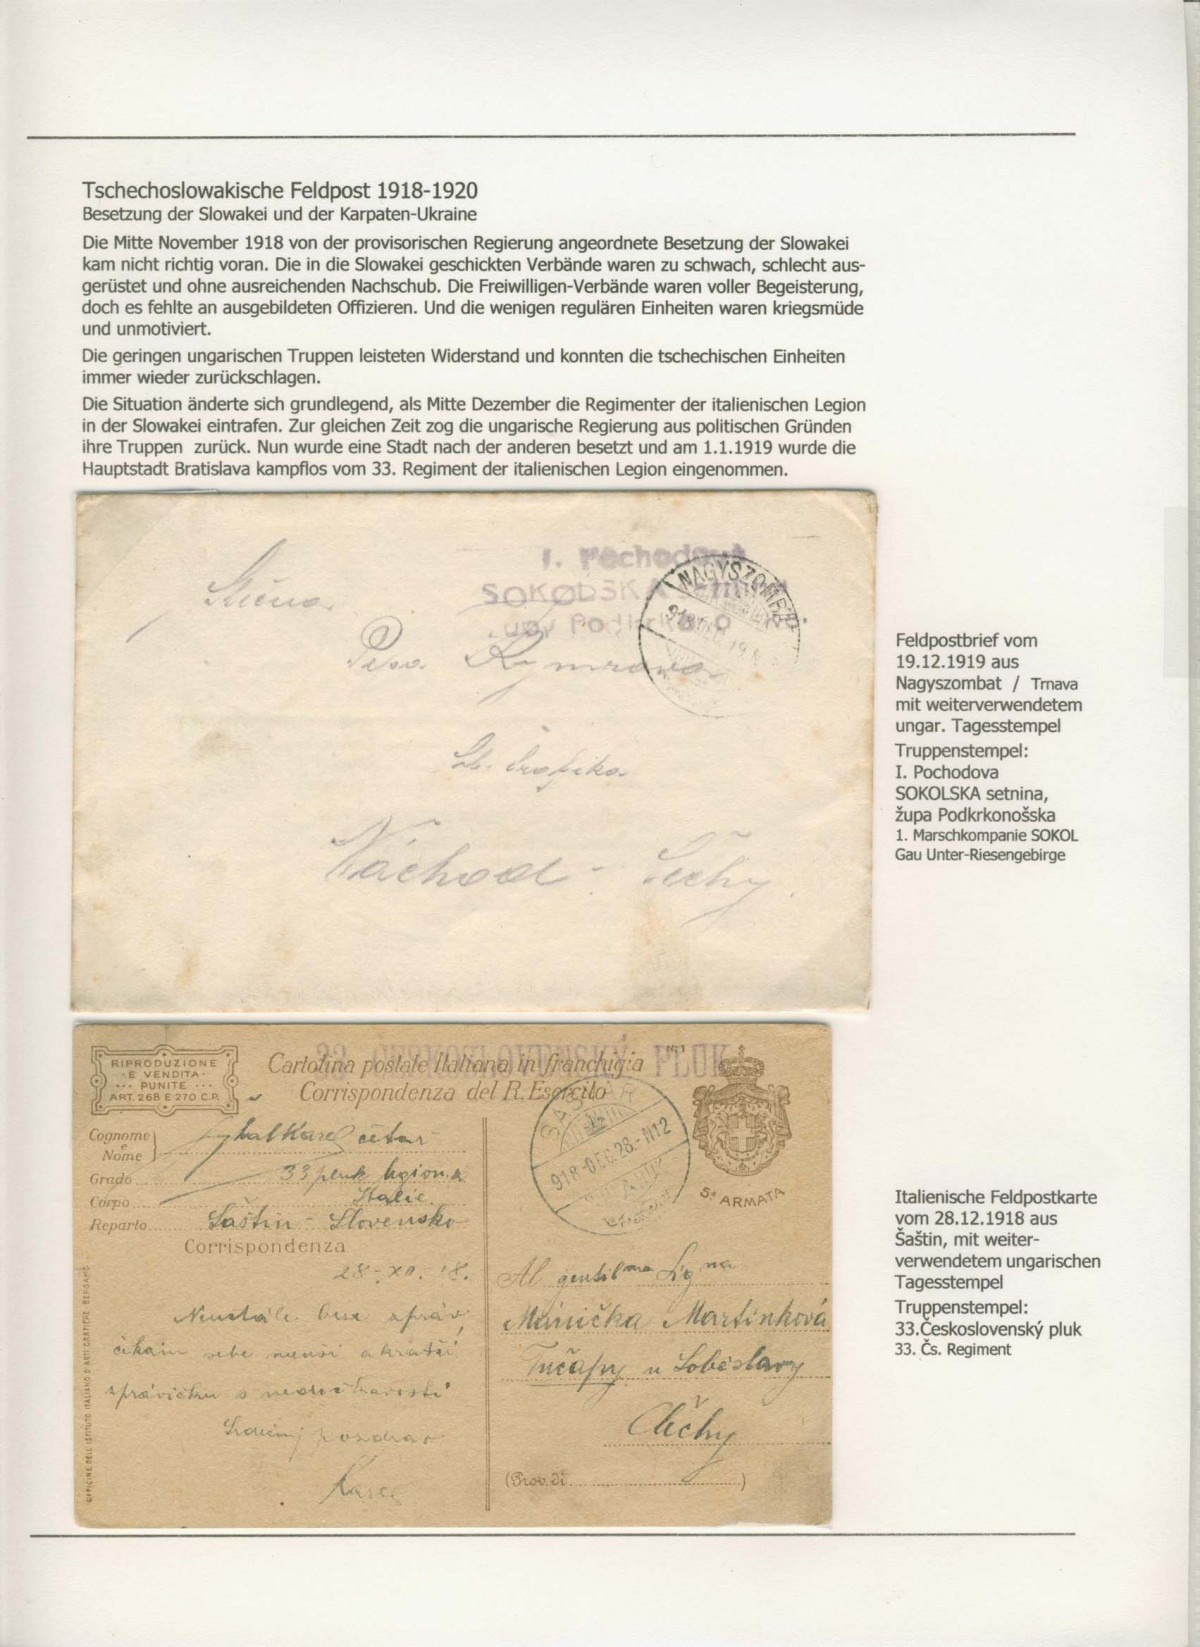 Tschechoslowakische Feldpost 1918-1920
Besetzung der Slowakei und der Karpaten-Ukraine
Die Mitte November 1918 von der provisorischen Regierung angeordnete Besetzung der Slowakei
kam nicht richtig voran. Die in die Slowakei geschickten Verbände waren zu schwach, schlecht aus-
gerüstet und ohne ausreichenden Nachschub. Die Freiwilligen-Verbände waren voller Begeisterung,
doch es fehlte an ausgebildeten Offizieren. Und die wenigen regulären Einheiten waren kriegsmüde
und unmotiviert.
Die geringen ungarischen Truppen leisteten Widerstand und konnten die tschechischen Einheiten
immer wieder zurückschlagen.
Die Situation änderte sich grundlegend, als Mitte Dezember die Regimenter der italienischen Legion
in der Slowakei eintrafen. Zur gleichen Zeit zog die ungarische Regierung aus politischen Gründen
ihre Truppen zurück. Nun wurde eine Stadt nach der anderen besetzt und am 1.1.1919 wurde die
Hauptstadt Bratislava kampflos vom 33. Regiment der italienischen Legion eingenommen.
I. Pochodova
SOKOLSKA setnina
NAGYSZOMBAT
Slečna
Rymrova
Náchod - Čechy.
Feldpostbrief vom
19.12.1919 aus
Nagyszombat / Trnava
mit weiterverwendetem
ungar. Tagesstempel
Truppenstempel:
I. Pochodova
SOKOLSKA setnina,
župa Podkrkonošska
1. Marschkompanie SOKOL
Gau Unter-Riesengebirge
RIPRODUZIONE
E VENDITA
PUNITE
ART. 268 E 270 C.P.
33. ČESKOSLOVENSKÝ PLUK
Cartolina postale Italiana in franchigia
Corrispondenza del R. Esercito
Cognome e Nome Karel četař
Grado 33 pluk legion. z
Corpo Italie.
Reparto Šaštin - Slovensko
Corrispondenza
28-XII. 18.
Neustále bez zpráv,
čekám
zprávičku s nedočkavostí
Srdečný pozdrav
Karel
OFFICINE DELL'ISTITUTO ITALIANO D'ARTI GRAFICHE - BERGAMO
918 DEC. 28 - N12
5ª ARMATA
Al gentilma Signa
Mánička Martínková
Tučapy u Soběslavy
Čechy
(Prov. di )
Italienische Feldpostkarte
vom 28.12.1918 aus
Šaštin, mit weiter-
verwendetem ungarischen
Tagesstempel
Truppenstempel:
33.Československý pluk
33. Čs. Regiment